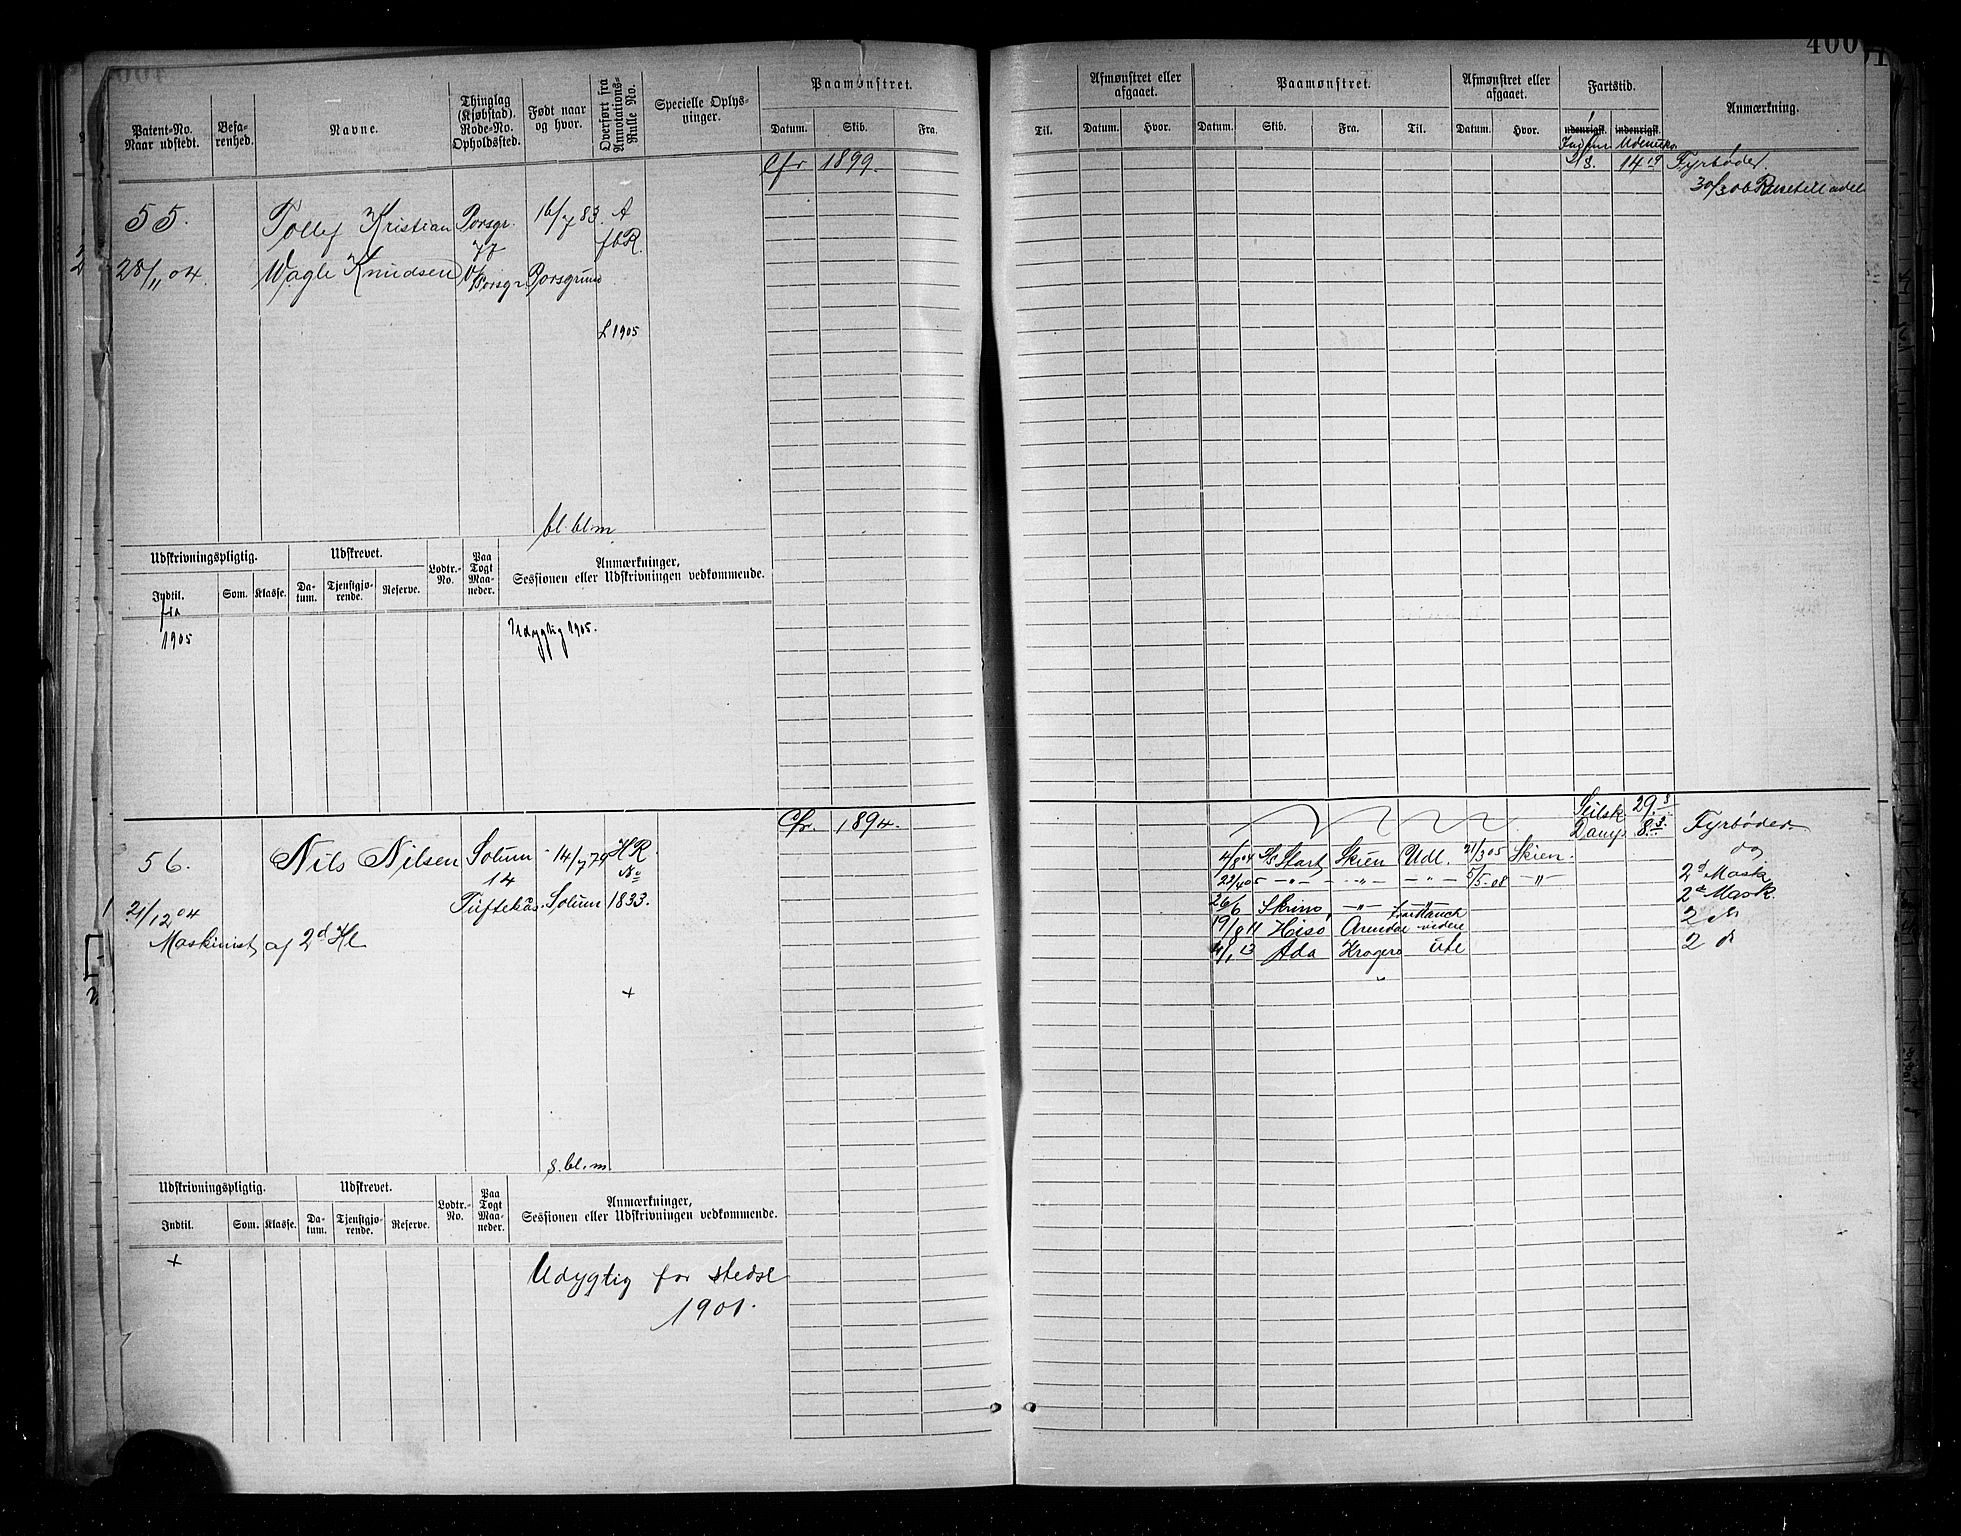 400
Patent-No. Naar udstedt.
Befa-renhed.
Navne.
Thinglag (Kjøbstad). Rode-No. Opholdssted.
Født naar og hvor.
Overført fra Annotations-Rulle No.
Specielle Oplys-ninger.
Paamønstret.
Datum. Skib. Fra.
Til.
Afmønstret eller afgaaet.
Datum. Hvor.
Paamønstret.
Datum. Skib. Fra. Til.
Afmønstret eller afgaaet.
Datum. Hvor.
Fartstid.
udenrigsk. indenrigsk.
Anmærkning.
Cfr 1899.
18. 14 19 Fyrbøder
55. Tollef Kristian Porsgr. 16/7 83 A
77 fbR.
28/11 04. Wagle Knudsen V/Porsgr. Porsgrund
£ 1905
bl. bl. m.
Udskrivningspligtig. Udskrevet. Lodtr.-No. Paa Togt Maa-neder. Anmærkninger, Sessionen eller Udskrivningen vedkommende.
Indtil. Som. Klasse. Da-tum. Tjenstgjø-rende. Reserve.
1905
Udygtig 1905.
Cfr. 1894.
Seilsk 29 3
Damp 8 3. Fyrbøder
og
56. Nils Nilsen Solum 14/7 79 HR.
14 No
Tuftekås. Solum 1833.
21/12 04
Maskinist af 2d Kl
+
4/8 04 Start Skien Udl. 21/3 05 Skien. 2d Mask
22/4 05 -"- -"- -"- 5/5-08 -"- 2d Mask.
26/6 Skrim, -"- -"-
19/8 11 Hisø Arendal videre
4/1 13 Ada Kragerø utl 2 d
s. bl. m.
Udskrivningspligtig. Udskrevet. Lodtr.-No. Paa Togt Maa-neder. Anmærkninger, Sessionen eller Udskrivningen vedkommende.
Indtil. Som. Klasse. Da-tum. Tjenstgjø-rende. Reserve.
+
Udygtig for stedse
1901.